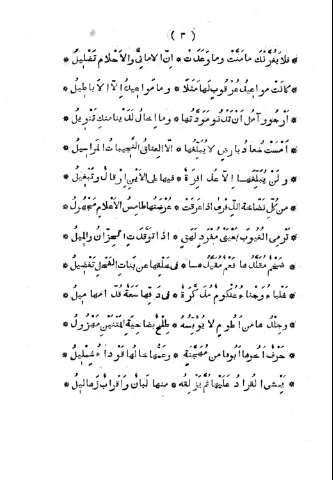 ( ٣ )
* فلا يغرنك ما منت وما وعدت * ان الاماني والاحلام تضليل *
* كانت مواعيد عرقوب لها مثلا * وما مواعيدها الا الاباطيل *
* ارجو وآمل ان تدنو مودتها * وما اخال لدينا منك تنويل *
* امست سعاد بارض لا يبلغها * الا العتاق النجيبات المراسيل *
* ولن يبلغها الا عذافرة * فيها على الاين ارقال وتبغيل *
* من كل نضاخة الذفرى اذا عرقت * عرضتها طامس الاعلام مجهول *
* ترمى الغيوب بعينى مفرد لهق * اذا توقدت الحزان والميل *
* ضخم مقلدها فعم مقيدها * فى خلقها عن بنات الفحل تفضيل *
* غلباء وجناء علكوم مذكرة * فى دفها سعة قدامها ميل *
* وجلدها من اطوم لا يؤيسه * طلح بضاحية المتنين مهزول *
* حرف اخوها ابوها من مهجنة * وعمها خالها قوداء شمليل *
* يمشى القراد عليها ثم يزلقه * منها لبان واقراب زهاليل *